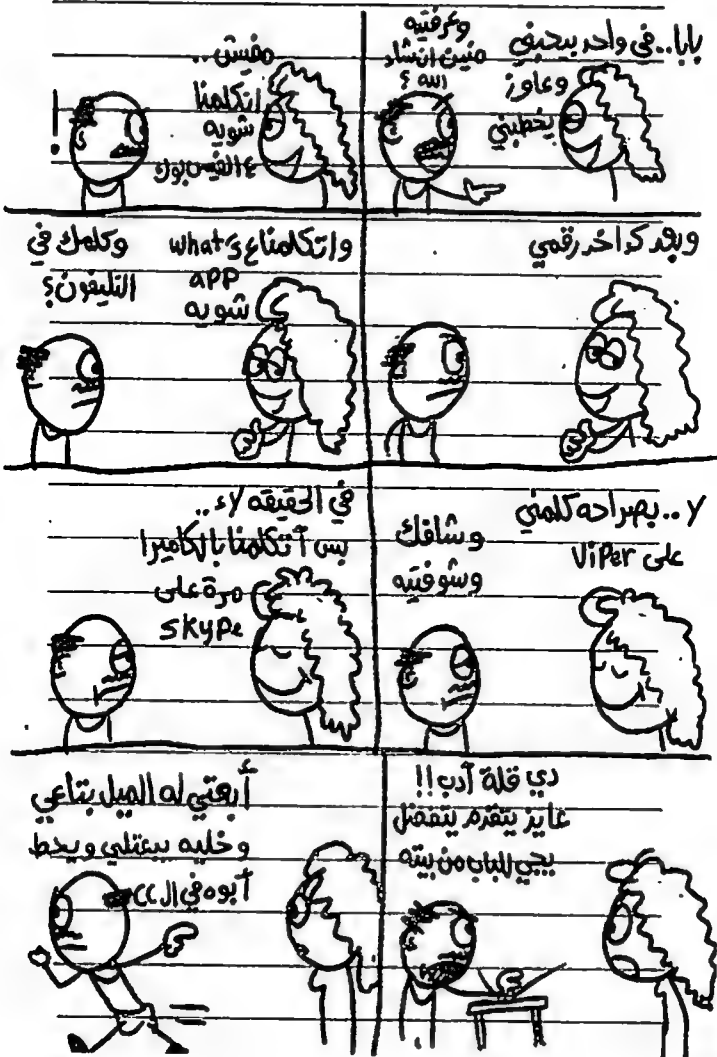 بابا.. في واحد بيحبني
وعاوز
يخطبني
وعرفتيه
منين ان شاء
الله ؟
مفيش..
اتكلمنا
شويه
ع الفيس بوك
!
وبعد كدا خد رقمي
واتكلمنا ع whats
app
شويه
وكلمك في
التليفون؟
لا.. بصراحه كلمني
على Viper
وشافك
وشوفتيه
في الحقيقه لاء..
بس أتكلمنا بالكاميرا
مرة على
skype
دي قلة أدب!!
عايز يتقدم يتفضل
يجي للباب من بيته
أبعتي له الميل بتاعي
وخليه يبعتلي ويحط
أبوه في ال CC